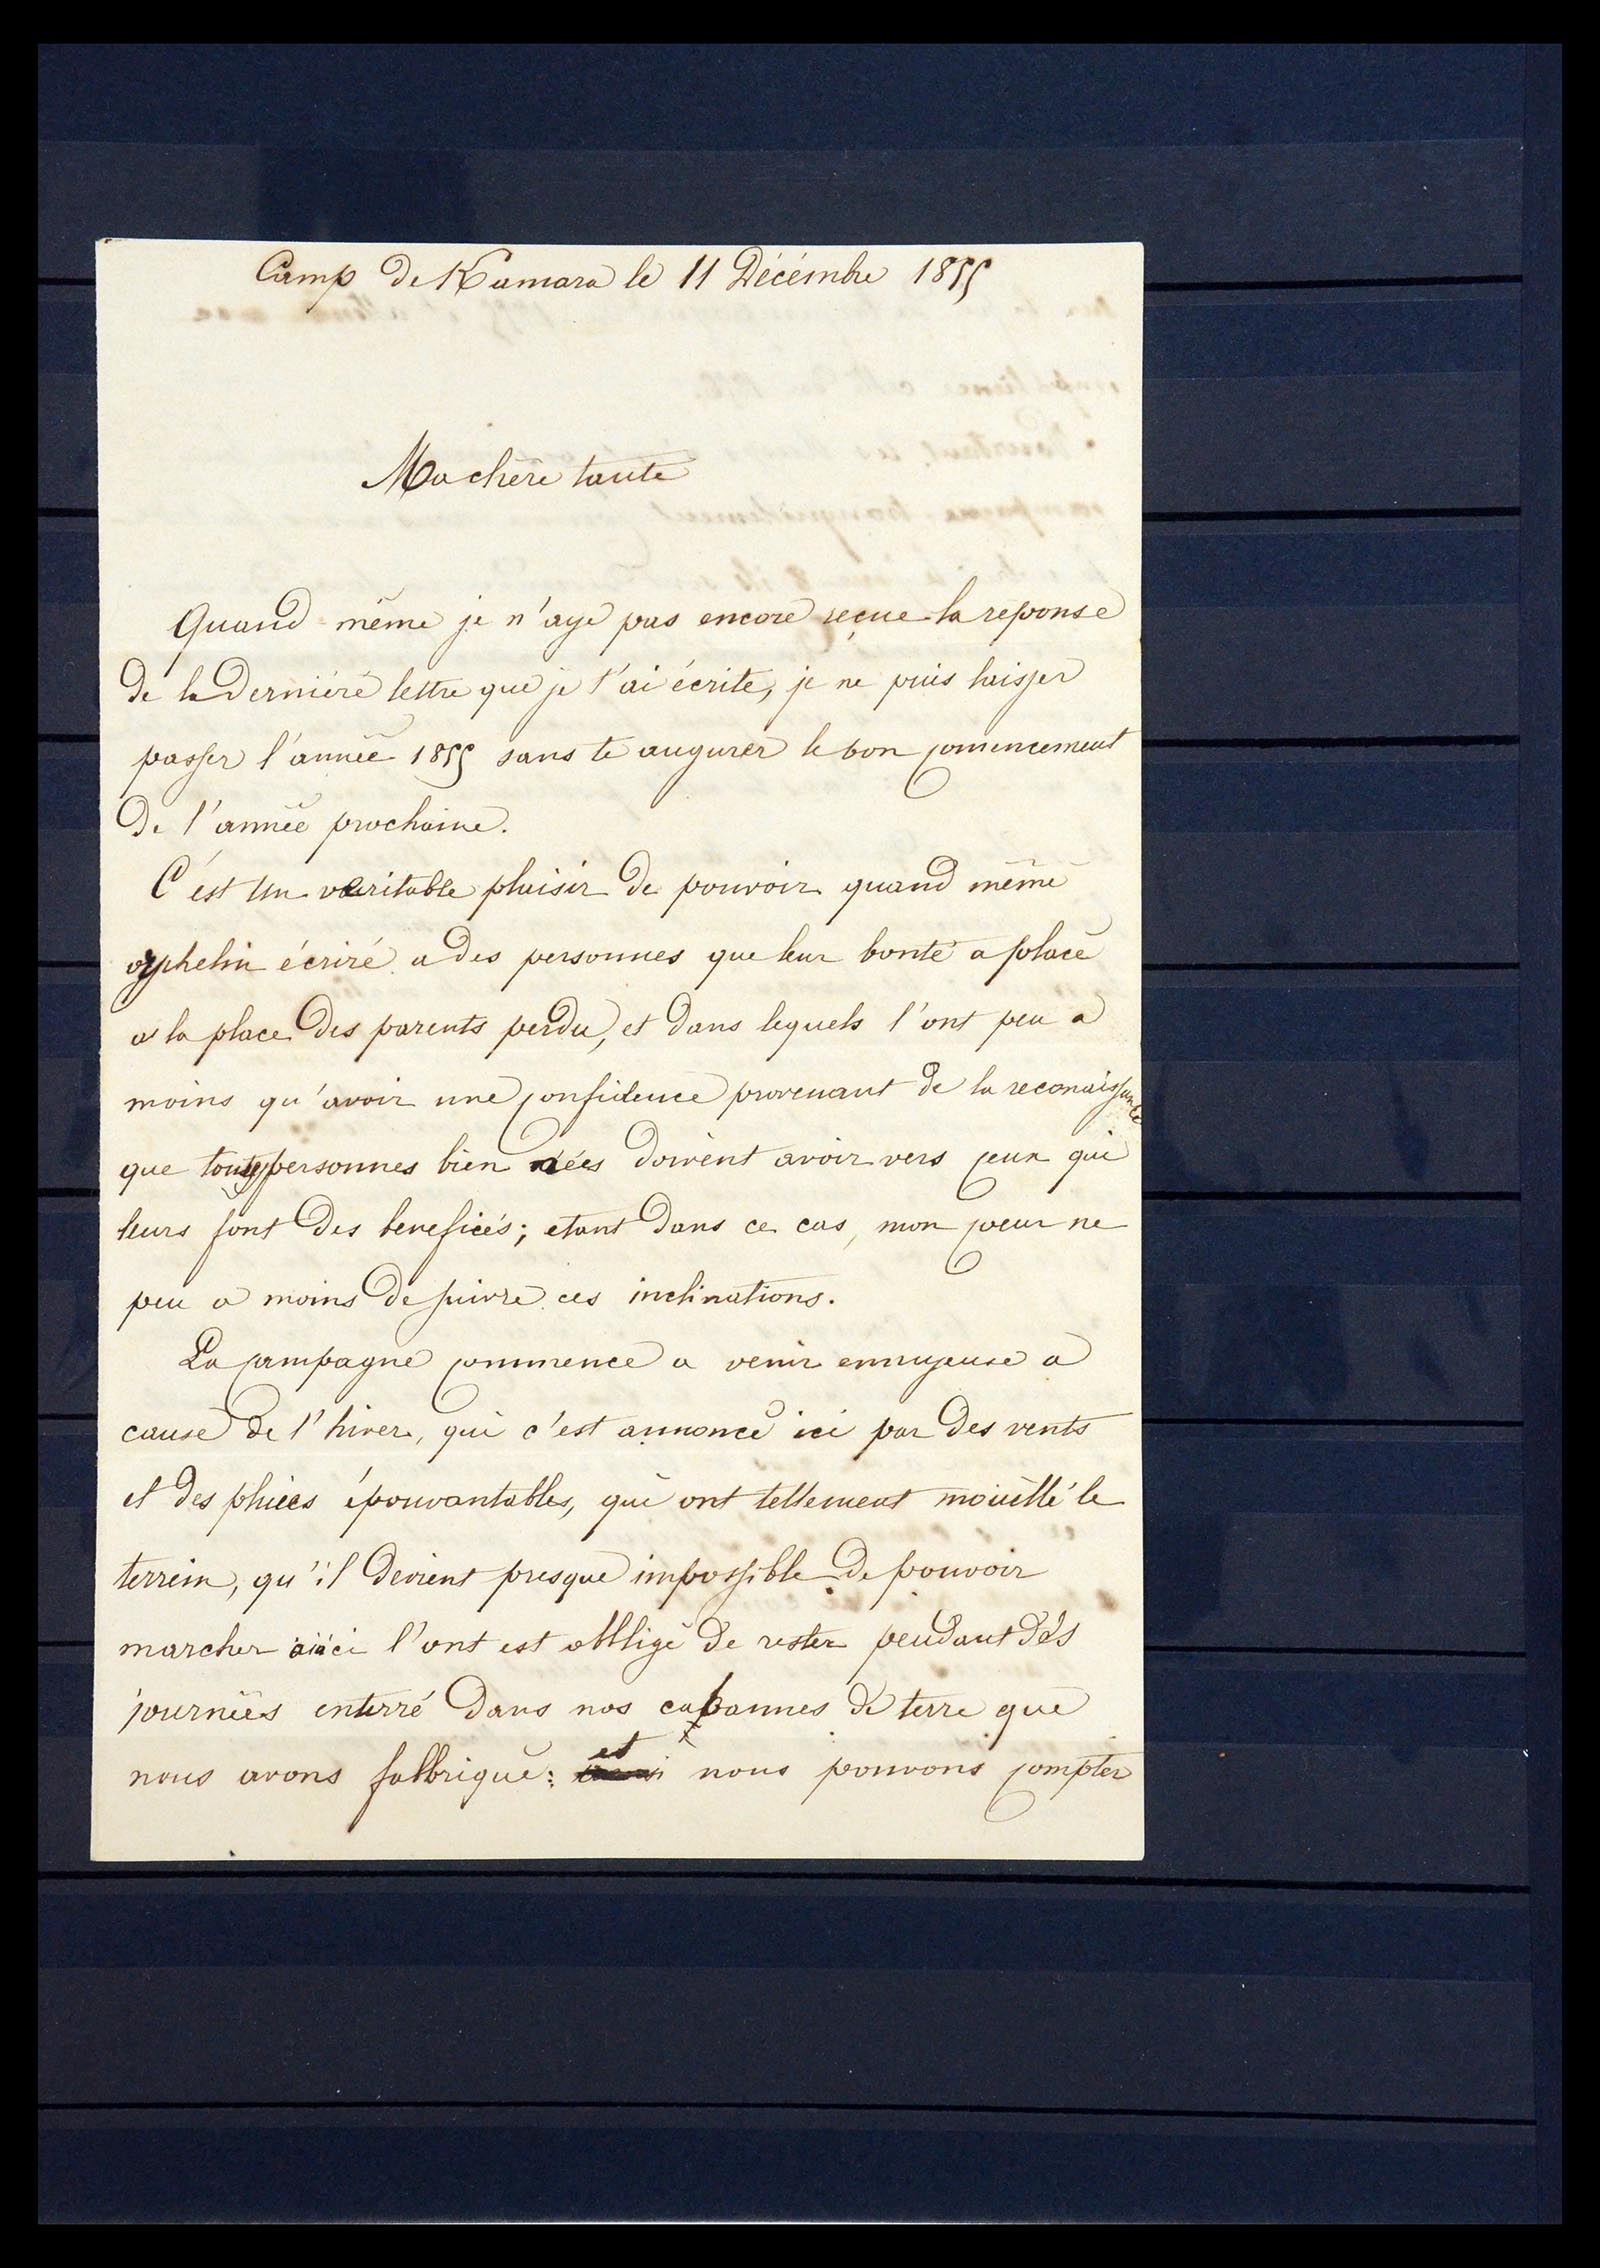 Camp de Kamara le 11 Décémbre 1855
Ma chère tante
Quand même je n'aye pas encore reçue la reponse
de la derniéré lettre que je t'ai écrite, je ne puis laisser
passer l'année 1855 sans te augurer le bon comencement
de l'année prochaine.
C'est un veritable plaisir de pouvoir quand même
orphelin écriré a des personnes que leur bonté a place
a la place des parents perdu, et dans lequels l'ont peu a
moins qu'avoir une confidence provenant de la reconaissance
que toutes personnes bien nées doivent avoir vers ceux qui
leurs font des beneficés; etant dans ce cas, mon coeur ne
peu a moins de suivre ces inclinations.
La campagne commence a venir ennuyeuse a
cause de l'hiver, qui c'est annoncé ici par des vents
et des pluies épouvantables, qui ont tellement mouillé le
terrein, qu'il devient presque impossible de pouvoir
marcher l'ont est obbligé de rester pendant des
journées enterré dans nos cabannes de terre que
nous avons fabbriqué: et nous pouvons compter